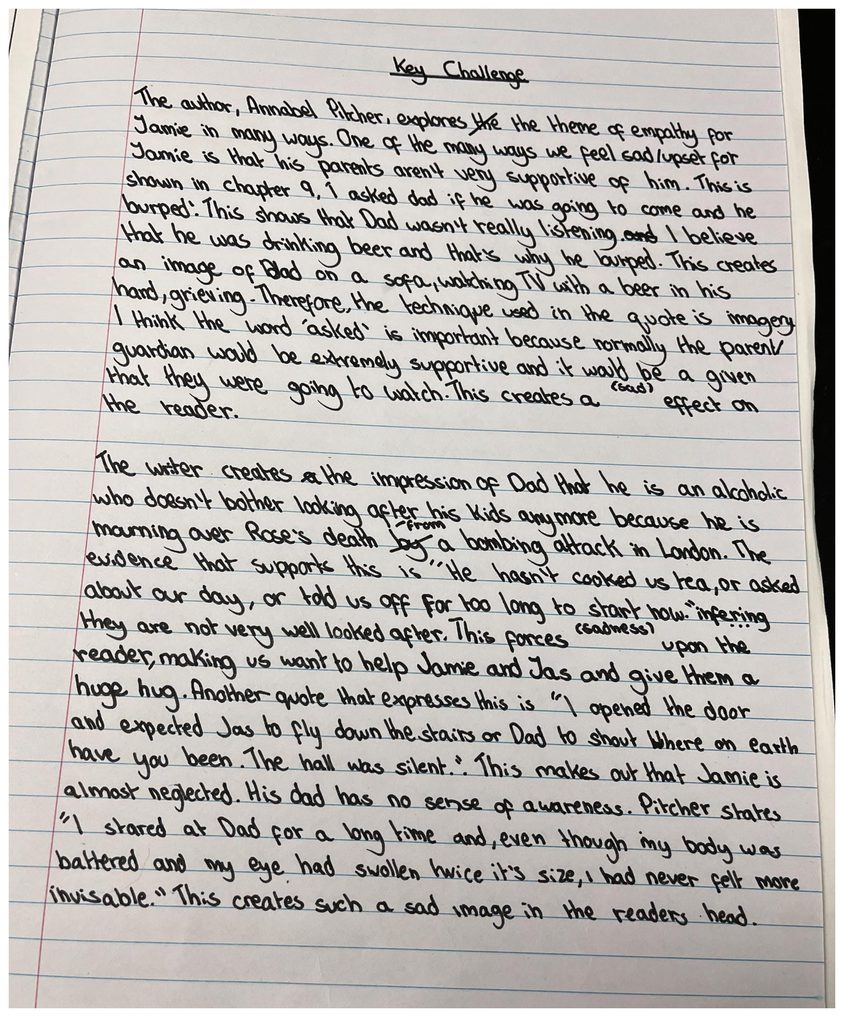 Key Challenge
The author, Annabel Pitcher, explores the the theme of empathy for
Jamie in many ways. One of the many ways we feel sad/upset for
Jamie is that his parents aren't very supportive of him. This is
shown in chapter 9, 'I asked dad if he was going to come and he
burped'. This shows that Dad wasn't really listening. and I believe
that he was drinking beer and that's why he burped. This creates
an image of Dad on a sofa, watching TV with a beer in his
hard, grieving. Therefore, the technique used in the quote is imagery
I think the word 'asked' is important because normally the parent/
guardian would be extremely supportive and it would be a given
that they were going to watch. This creates a (sad) effect on
the reader.
The writer creates a the impression of Dad that he is an alcoholic
who doesn't bother looking after his kids anymore because he is
mourning over Rose's death by from a bombing attack in London. The
evidence that supports this is "He hasn't cooked us tea, or asked
about our day, or told us off for too long to start now." infering
they are not very well looked after. This forces (sadness) upon the
reader, making us want to help Jamie and Jas and give them a
huge hug. Another quote that expresses this is "I opened the door
and expected Jas to fly down the stairs or Dad to shout Where on earth
have you been. The hall was silent.". This makes out that Jamie is
almost neglected. His dad has no sense of awareness. Pitcher states
"I stared at Dad for a long time and, even though my body was
battered and my eye had swollen twice it's size, I had never felt more
invisable." This creates such a sad image in the readers head.